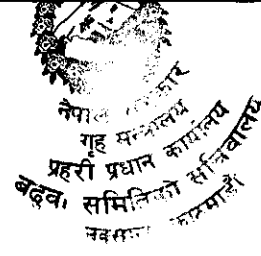 नेपाल सरकार
गृह मन्त्रालय
प्रहरी प्रधान कार्यालय
बढुवा समितिको सचिवालय
नक्साल काठमाडौं